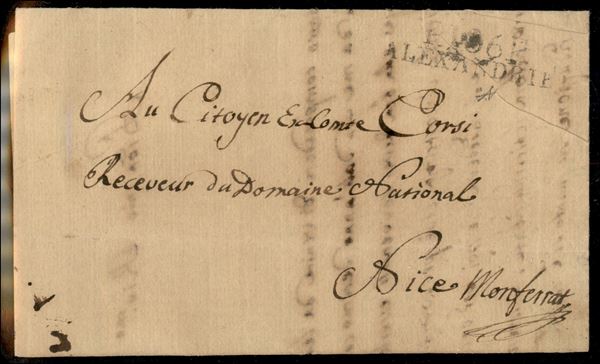 P.106.P.
ALEXANDRIE
Au Citoyen Ex-Comte Corsi
Receveur du Domaine National
Nice Monferrat